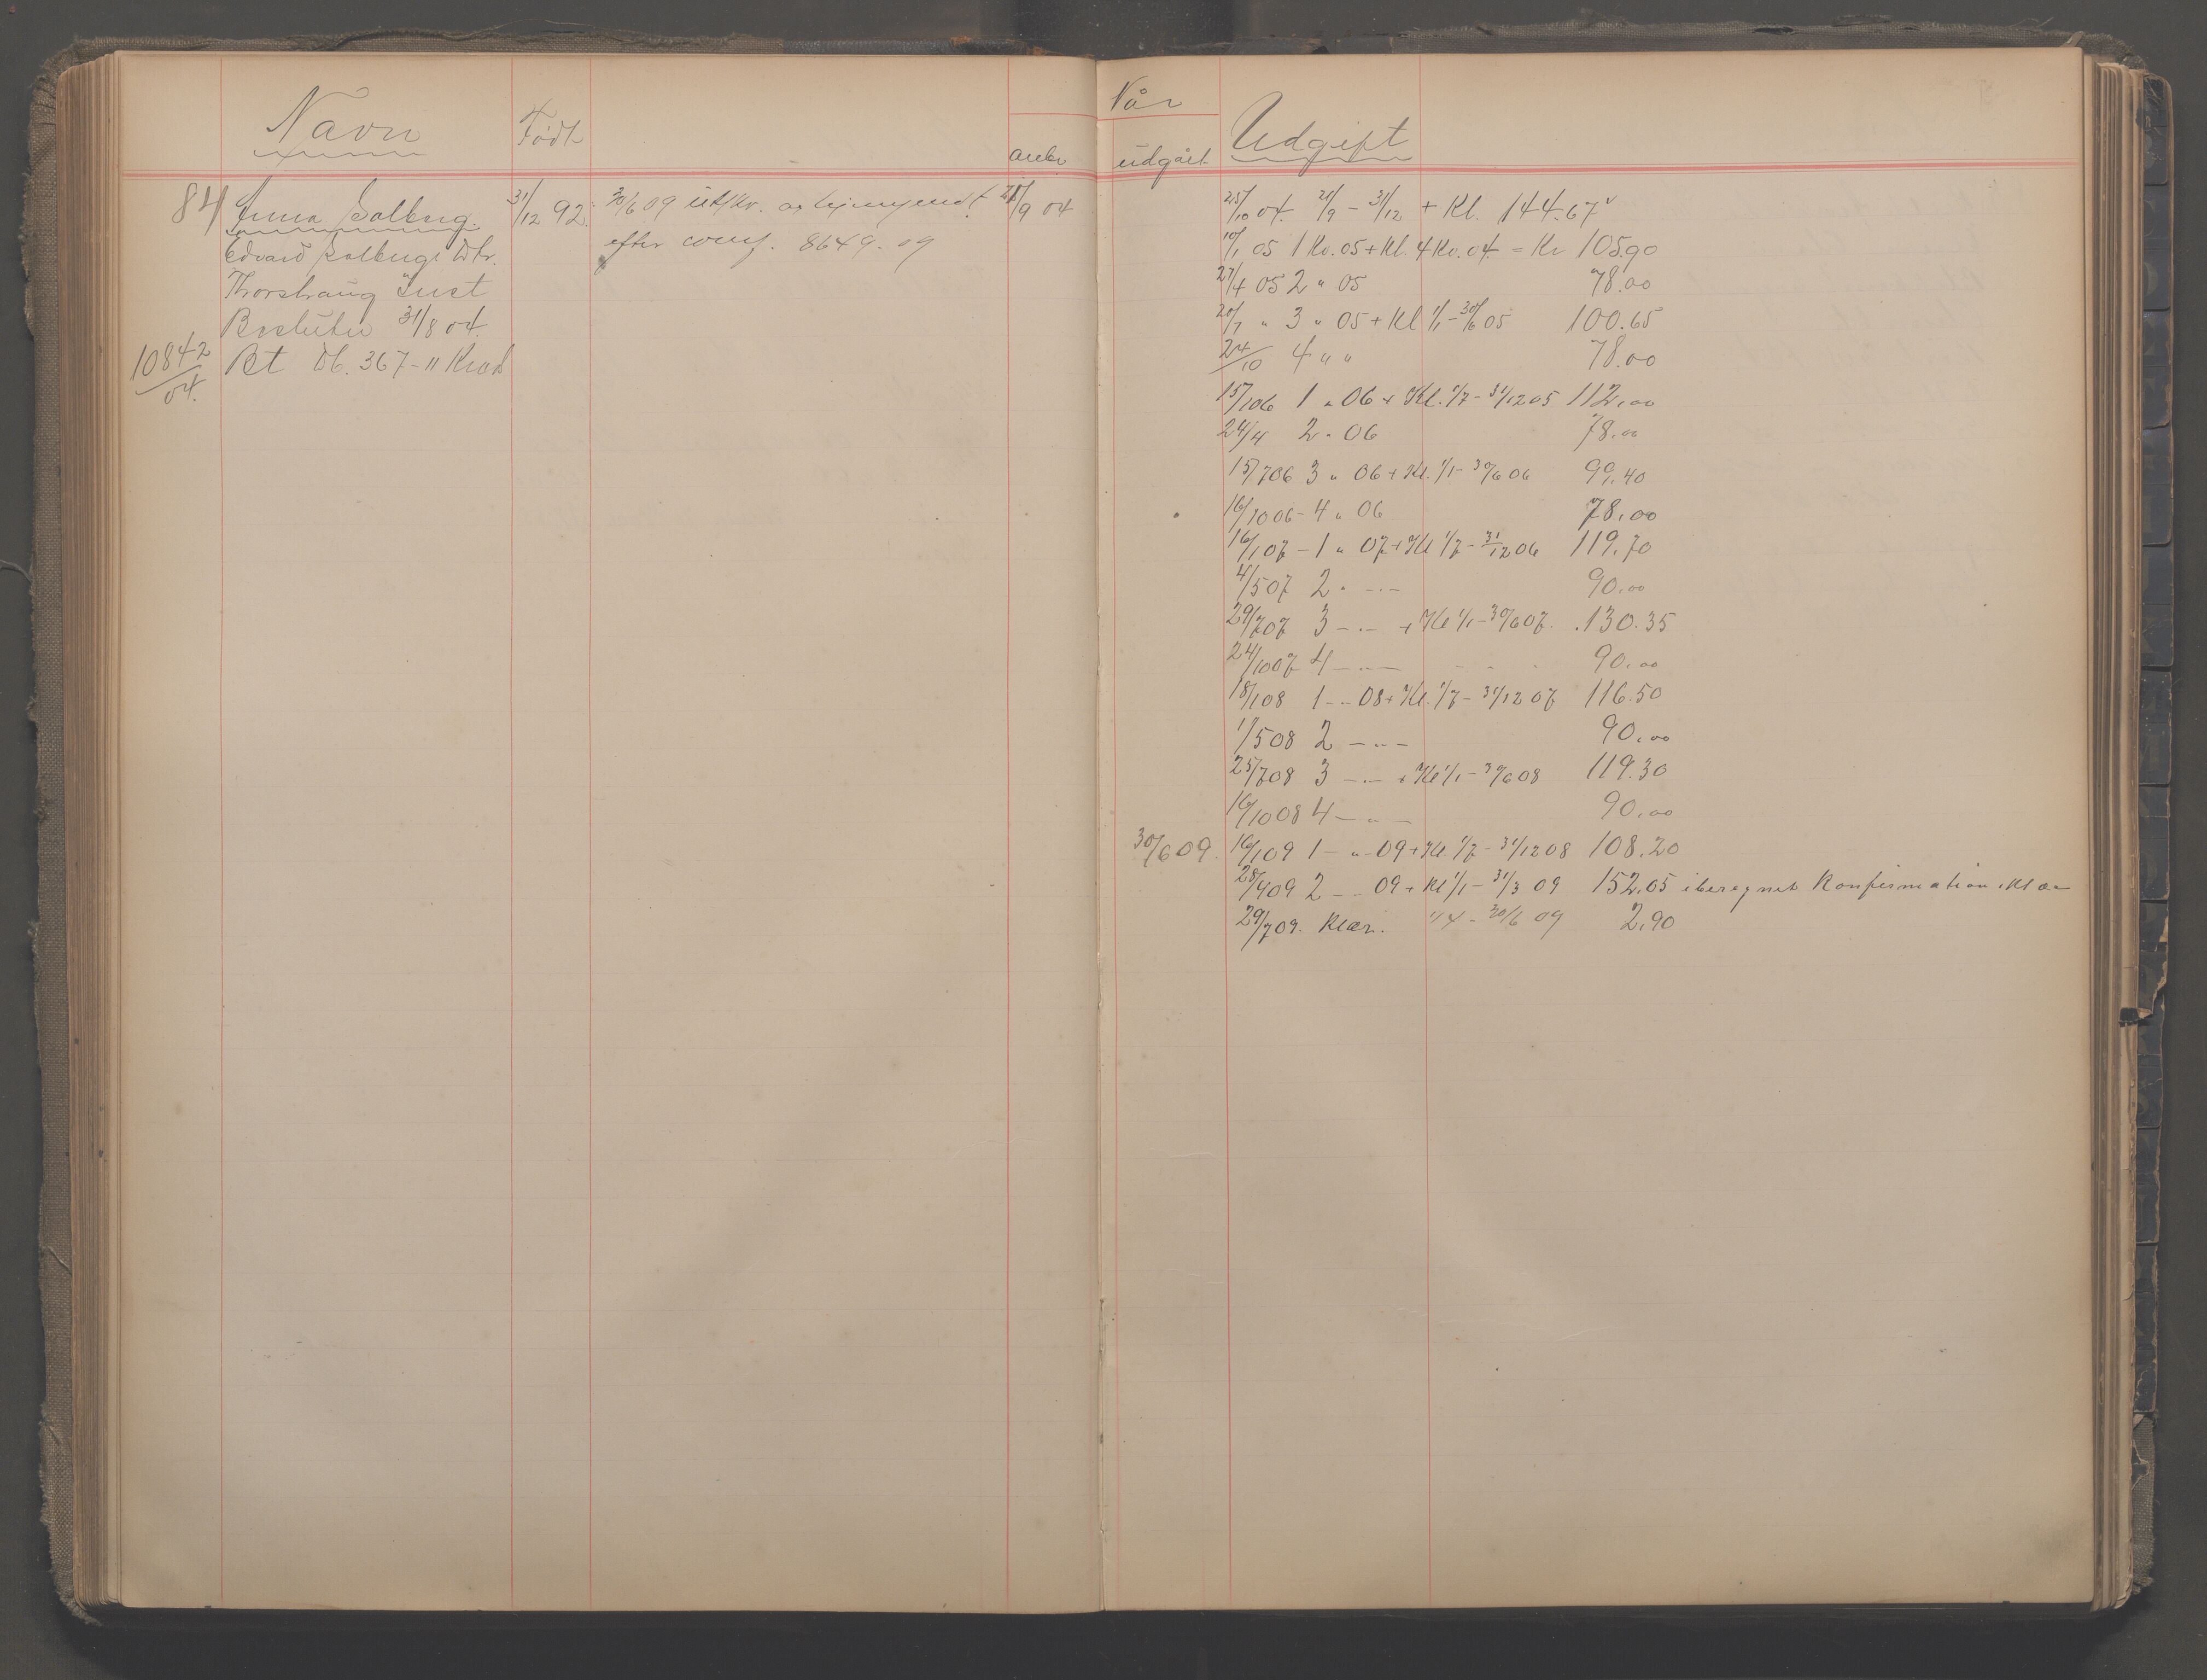 Navn
Født
Når
anbr
udgået
Udgift
84 Anna Solberg. 31/12 92. 30/6 09 utskr. 21/9 04
efter conf. 8649-09
Edvard Solbergs Dtr.
Thorshaug Inst
Beslutn 31/8 04.
10842/04. Bt Db. 367-11 Krad
25/10 04. 21/9 - 31/12 + Kl. 144.67
10/1 05 1 Kv. 05 + Kl. 4 Kv. 04. = Kr 105.90
27/4 05 2 " 05 78.00
20/7 " 3 " 05 + Kl 1/1 - 30/6 05 100.65
24/10 4 " " 78.00
15/1 06 1 " 06 + Kl. 1/7 - 31/12 05 112.00
24/4 2 " 06 78.00
15/7 06 3 " 06 + Kl. 1/1 - 30/6 06 99.40
16/10 06 - 4 " 06 78.00
16/1 07 - 1 " 07 + Kl 1/7 - 31/12 06 119.70
4/5 07 2 " - " - 90.00
29/7 07 3 - " - + Kl 1/1 - 30/6 07. 130.35
24/10 07 4 - " - 90.00
18/1 08 1 - " 08 + Kl. 1/7 - 31/12 07 116.50
1/5 08 2 - " - 90.00
25/7 08 3 - " - + Kl 1/1 - 30/6 08 119.30
16/10 08 4 - " - 90.00
30/6 09. 16/1 09 1 - " - 09 + Kl. 1/7 - 31/12 08 108.20
28/4 09 2 - - 09 + Kl 1/1 - 31/3 09 152.05 iberegnet Konfirmation. Klær
29/7 09. Klær. 1/4 - 30/6 09 2.90